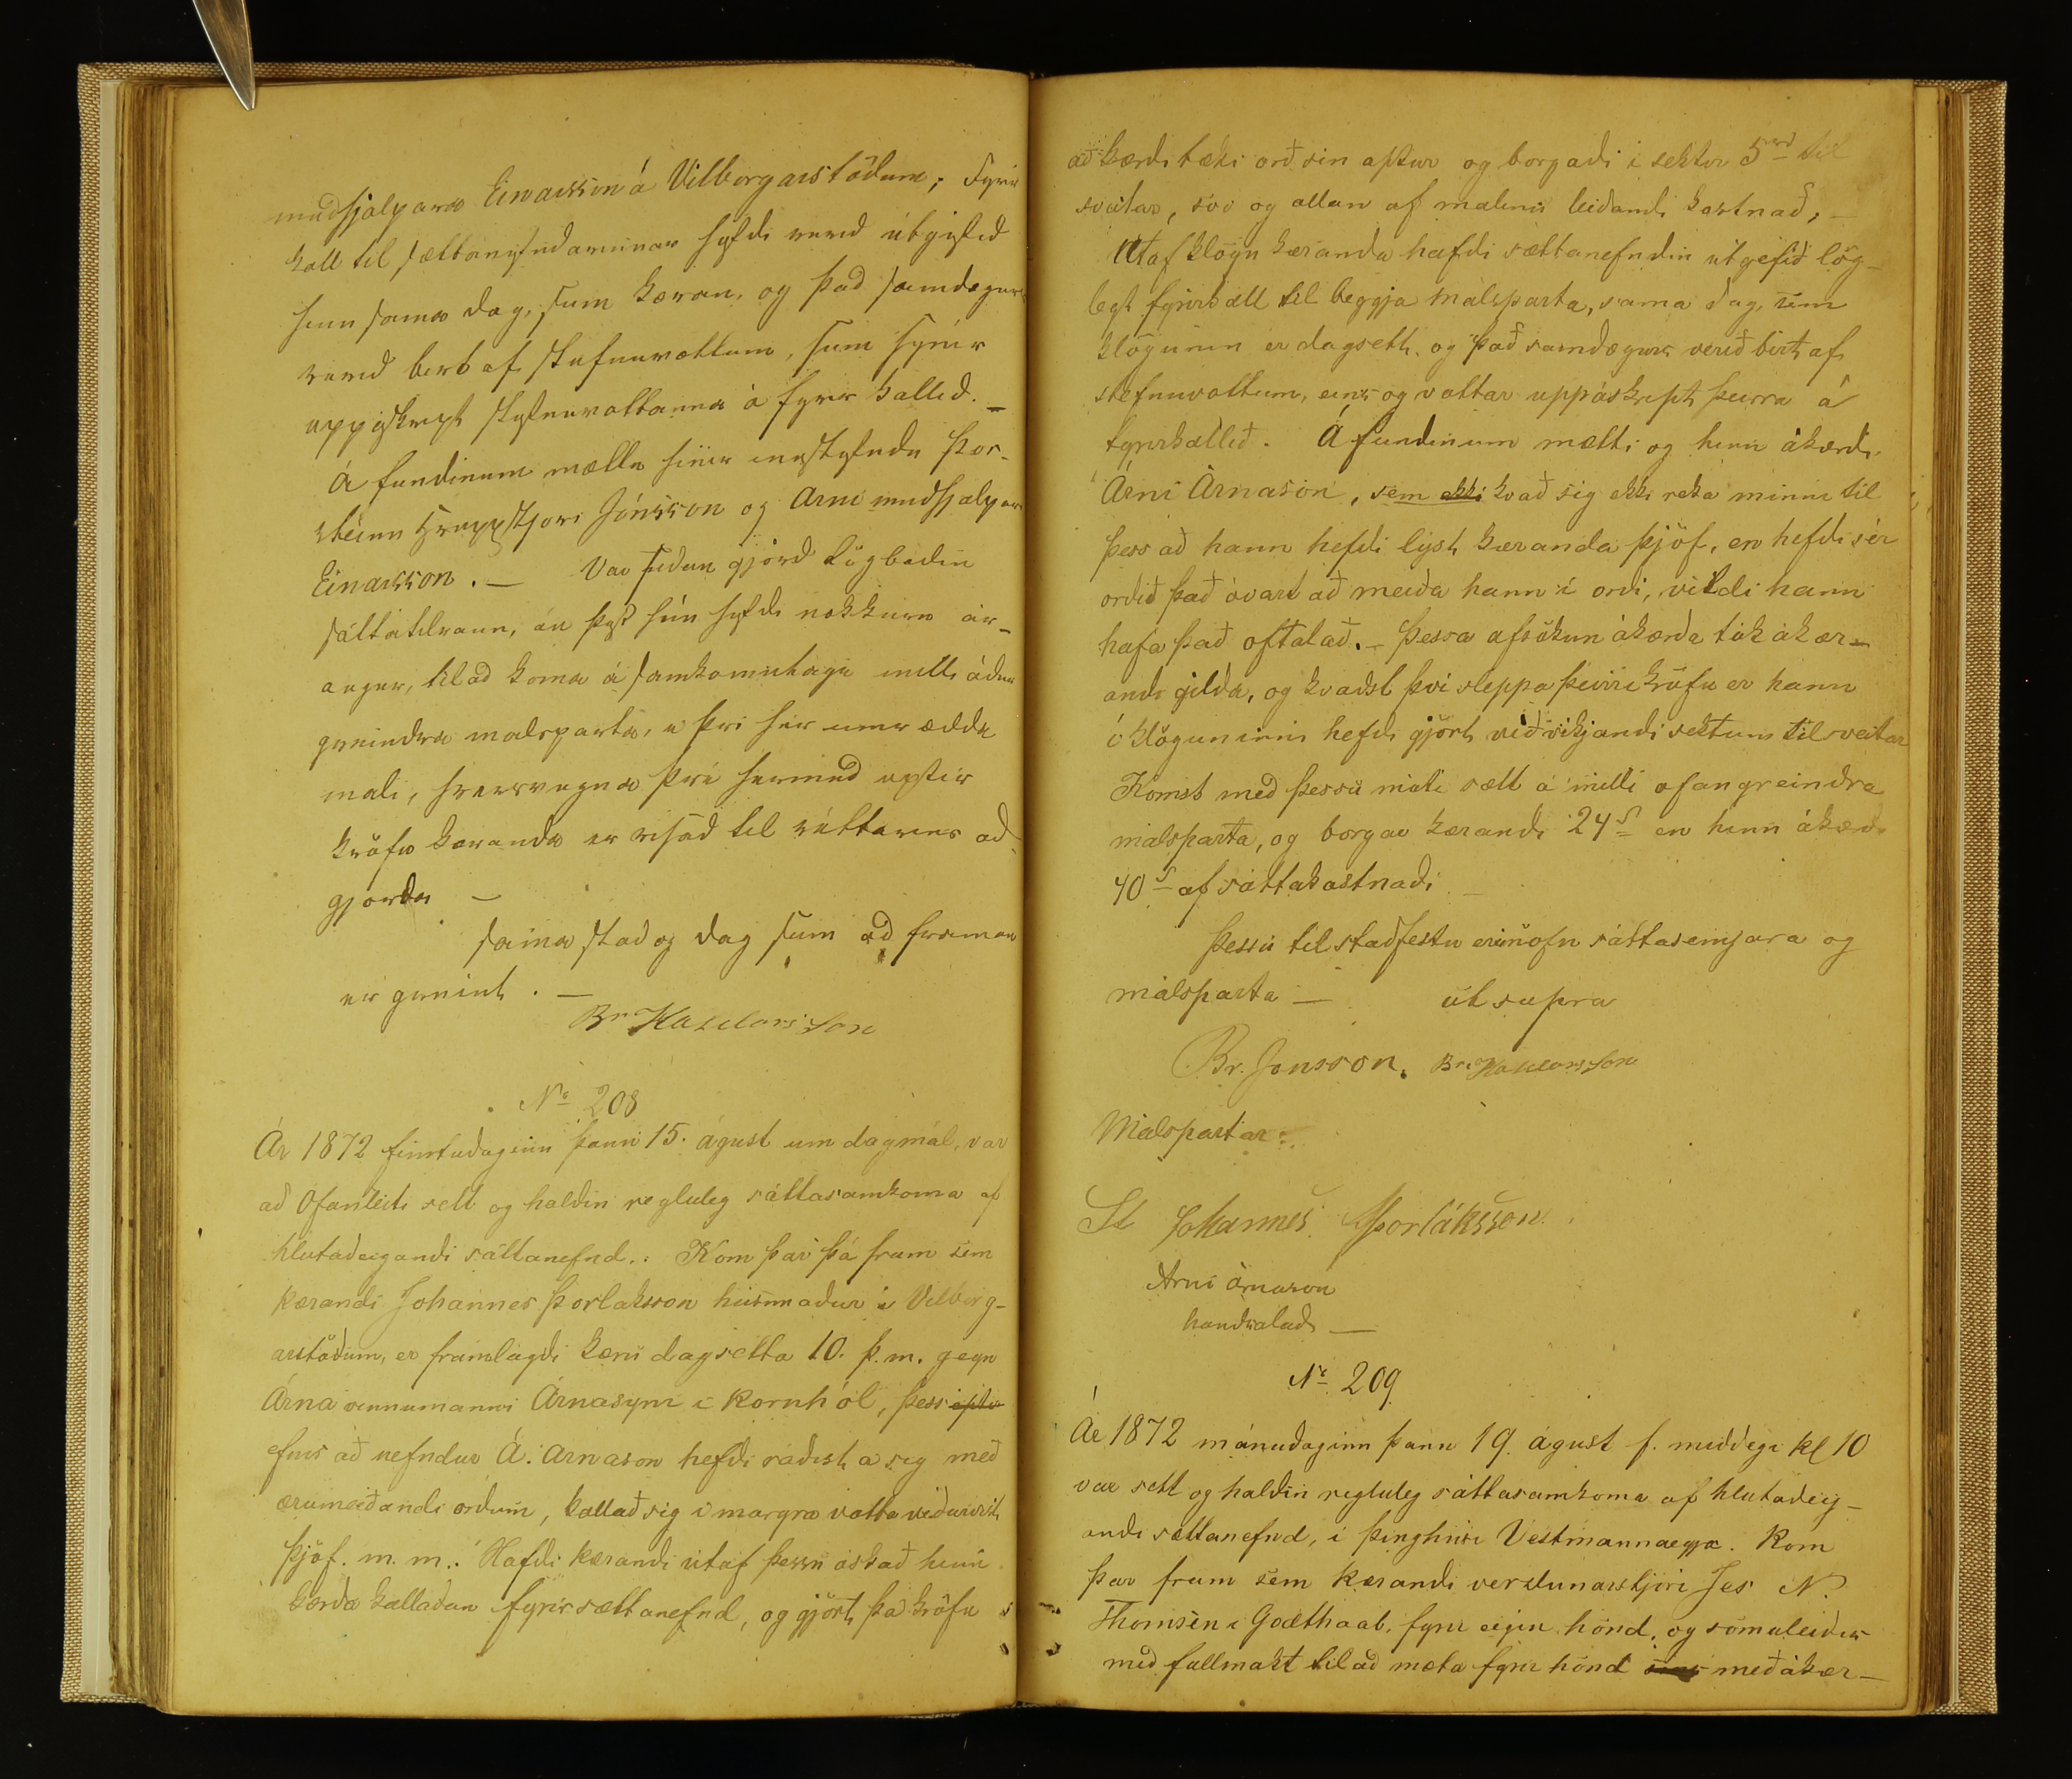 meðhjálpara Einarsson á Vilborgarstöðum; Fyrir
kall til sættanefndarinnar hefdi verid útgefid
hinn sama dag, sem kæran, og þad samdægurs
verid birt af stefnuvottum, sem sýnir
uppáskript stefnuvottanna á fyrirkallid. –
Á fundinum mættu hinir innstefndu Þor-
steinn hreppstjóri Jónsson og Arni meðhjálpari
Einarsson. – Var sidan gjörd lögbodin
sáttatilraun, án þess hún hefdi nokkurn ár-
angur, til ad koma á samkomulagi milli ádur
greindra malsparta, í þvi hér umrædda
mali, hversvegna þvi hermed eptir
kröfu kæranda er vísad til réttarins ad-
gjörda –
sama stad og dag sem ad framan
er greint. –
Br Haldorsson
No 208
Ár 1872 fimtudaginn þann 15. ágúst um dagmál, var
að Ofanleiti sett og haldin regluleg sáttasamkoma af
hlutaðeigandi sáttanefnd.: Kom þar þá fram sem
kærandi Johannes Þorlaksson húsmaður á Vilborg-
arstöðum, er framlagði kæru dagsetta 10. þ.m. gegn
Árna vinnumanni Árnasyni í Kornhól, þess epter
efnis að nefndur Á. Arnason hefdi ráðist á sig með
ærumeiðandi orðum, kallað sig í margra votta viðurvist
Þjóf. m. m.: Hafdi kærandi útaf þessu óskað hinn
kærda kalladan fyrir sættanefnd, og gjört þá kröfu
að kærdi tæki orð sín aptur og borgaði í sektir 5 rd til
sveitar, svo og allan af málinu leiðandi kostnað, –
Útaf klögu kæranda hafdi sættanefndin útgefið lög-
legt fyrirkall til beggja málsparta, sama dag, sem
klögunin er dagsett, og það samdægurs verið birt af
stefnuvottum, eins og vottar uppáskript þeirra á
fyrirkallið. Á fundinum mætti og hinn ákærdi
Árni Árnason, sem ekki kvað sig ekki reka minni til
þess að hann hefdi lýst kæranda þjóf, en hefdi sér
orðið það óvart að meiða hann í orði, vildi hann
hafa það oftalað. – Þessa afsökun ákærda tók ákær-
andi gilda, og kvadst því sleppa þeirri kröfu er hann
í klöguninni hefdi gjört viðvíkjandi sektum til sveitar
Komst með þessu móti sætt á milli ofangreindra
málsparta, og borgar kærandi 24 s en hinn ákærdi
40 s af sáttakostnaði –
Þessu til staðfestu eru nöfn sáttasemjara og
málsparta – út supra
Br. Jonsson. Br. Haldorsson
Málspartar:
St Johannes Þorláksson
Arni Arnason
handsalað –
No 209
Ár 1872 mánudaginn þann 19. ágúst f. middegi kl 10
var sett og haldin regluleg sáttasamkoma af hlutadeig-
andi sættanefnd, í þinghúsi Vestmannaeyja. Kom
þar fram sem kærandi verslunarstjóri Jes N.
Thomsen í Godthaab, fyrir eigin hönd, og sömuleiðis
með fullmakt til að mæta fyrir hönd sins meðákær-